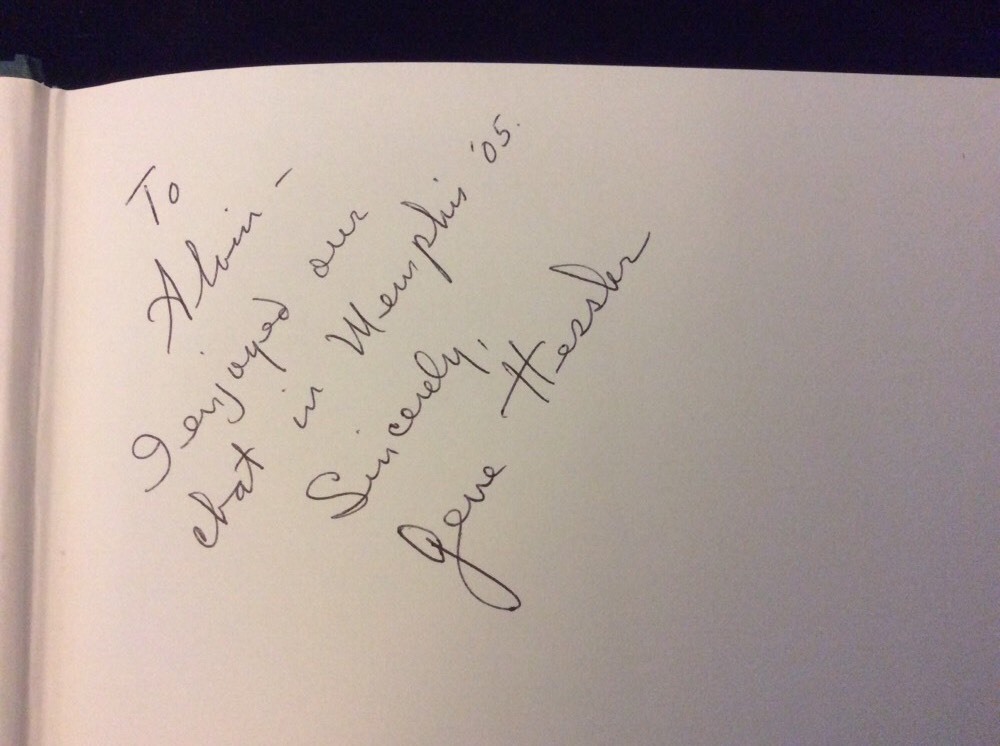 To
Alvin -
I enjoyed our
chat in Memphis '05.
Sincerely,
Gene Hessler